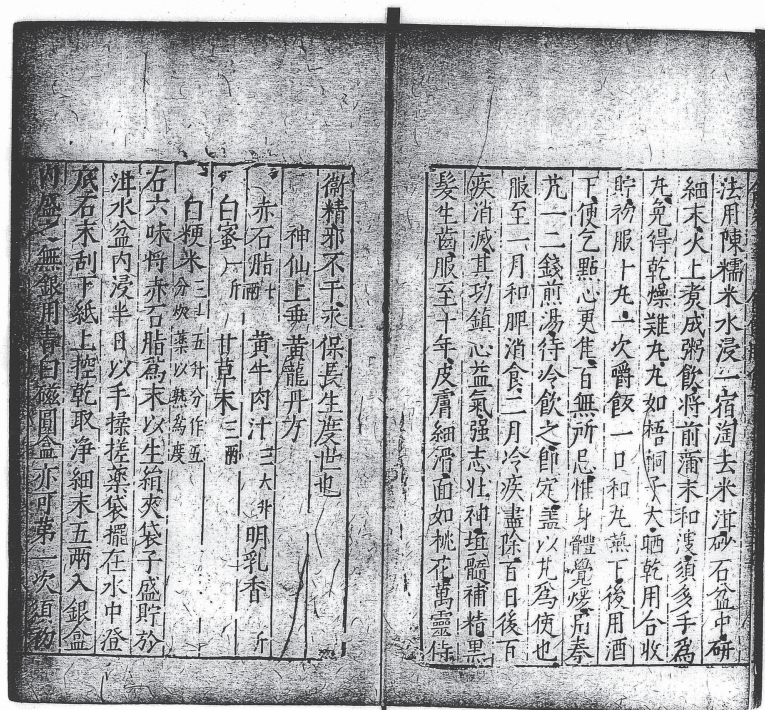 法用陳糯米水浸一宿淘去米泔砂石盆中研
細末火上煮成粥飲將前蒲末和溲須多手為
丸免得乾燥難丸丸如梧桐子大晒乾用合收
貯初服十丸一次嚼飯一口和丸藥下後用酒
下使乞點心更隹百無所忌惟身體覺煖用秦
艽一二錢煎湯待冷飲之即定蓋以艽為使也
服至一月和脾消食二月冷疾盡除百日後百
疾消滅其功鎮心益氣強志壯神填髓補精黑
髮生齒服至十年皮膚細滑面如桃花萬靈侍
衛精邪不干求保長生度世也
神仙上乘黃龍丹方
赤石脂十兩 黃牛肉汁三大升 明乳香 斤
白蜜一斤 甘草末三兩
白粳米三斗五升分作五分炊藥以熟為度
右六味將赤石脂為末以生絹夾袋子盛貯於
泔水盆內浸半日以手揉搓藥袋擺在水中澄
底石末刮下紙上控乾取淨細末五兩入銀盒
內盛之無銀用青白磁圓盒亦可第一次須初